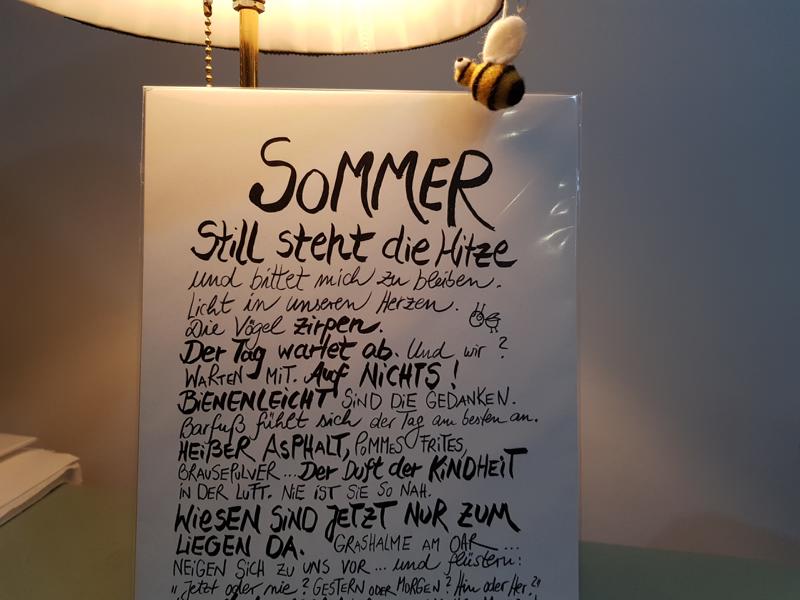 SOMMER
Still steht die Hitze
und bittet mich zu bleiben.
Licht in unseren Herzen.
Die Vögel zirpen.
Der Tag wartet ab. Und wir?
WARTEN MIT. Auf NICHTS!
BIENENLEICHT SIND DIE GEDANKEN.
Barfuß fühlt sich der Tag am besten an.
HEIßER ASPHALT, POMMES FRITES,
BRAUSEPULVER... Der Duft der KINDHEIT
IN DER LUFT. NIE IST SIE SO NAH.
WIESEN SIND JETZT NUR ZUM
LIEGEN DA. GRASHALME AM OAR...
NEIGEN SICH ZU UNS VOR... und flüstern:
"Jetzt oder nie? GESTERN ODER MORGEN? Hin oder Her?"